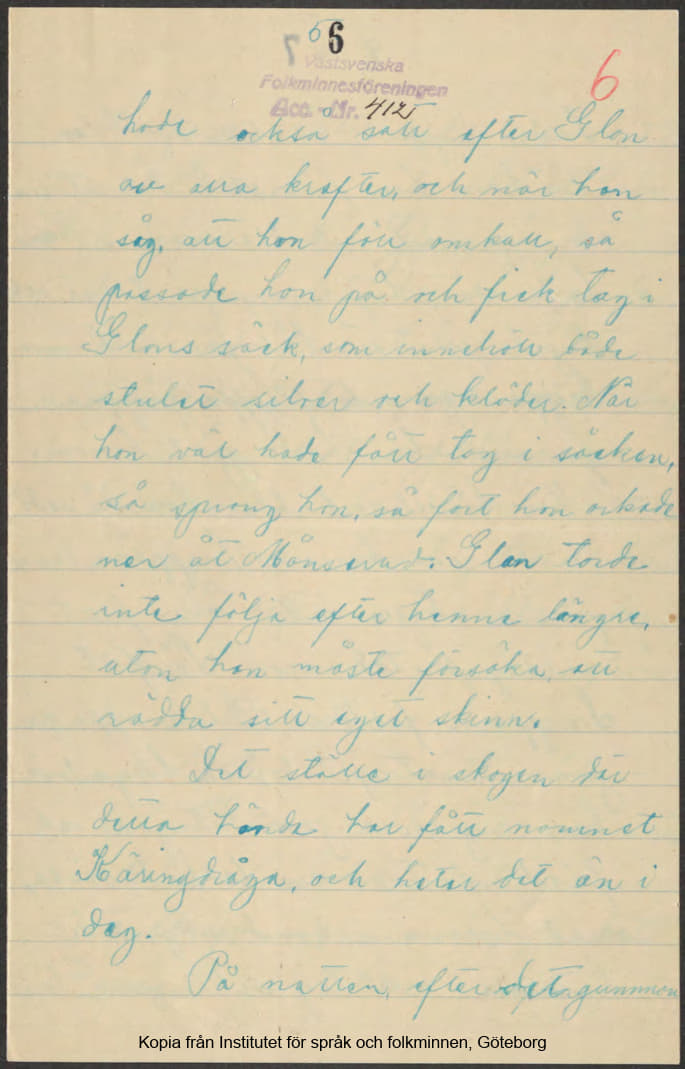 7 5 6
Västsvenska
Folkminnesföreningen
Acc. Nr. 412
6
hade också satt efter Glan
av alla krafter, och när hon
såg, att han föll omkull, så
passade hon på och fick tag i
Glans säck, som innehöll både
stulet silver och kläder. När
hon väl hade fått tag i säcken,
så sprang hon, så fort hon orkade
ner åt Månsarud. Glan torde
inte följa efter henne längre,
utan han måste försöka att
rädda sitt eget skinn.
Det ställe i skogen där
detta hände har fått namnet
Käringdråga, och heter det än i
dag.
På natten, efter det gumman
Kopia från Institutet för språk och folkminnen, Göteborg